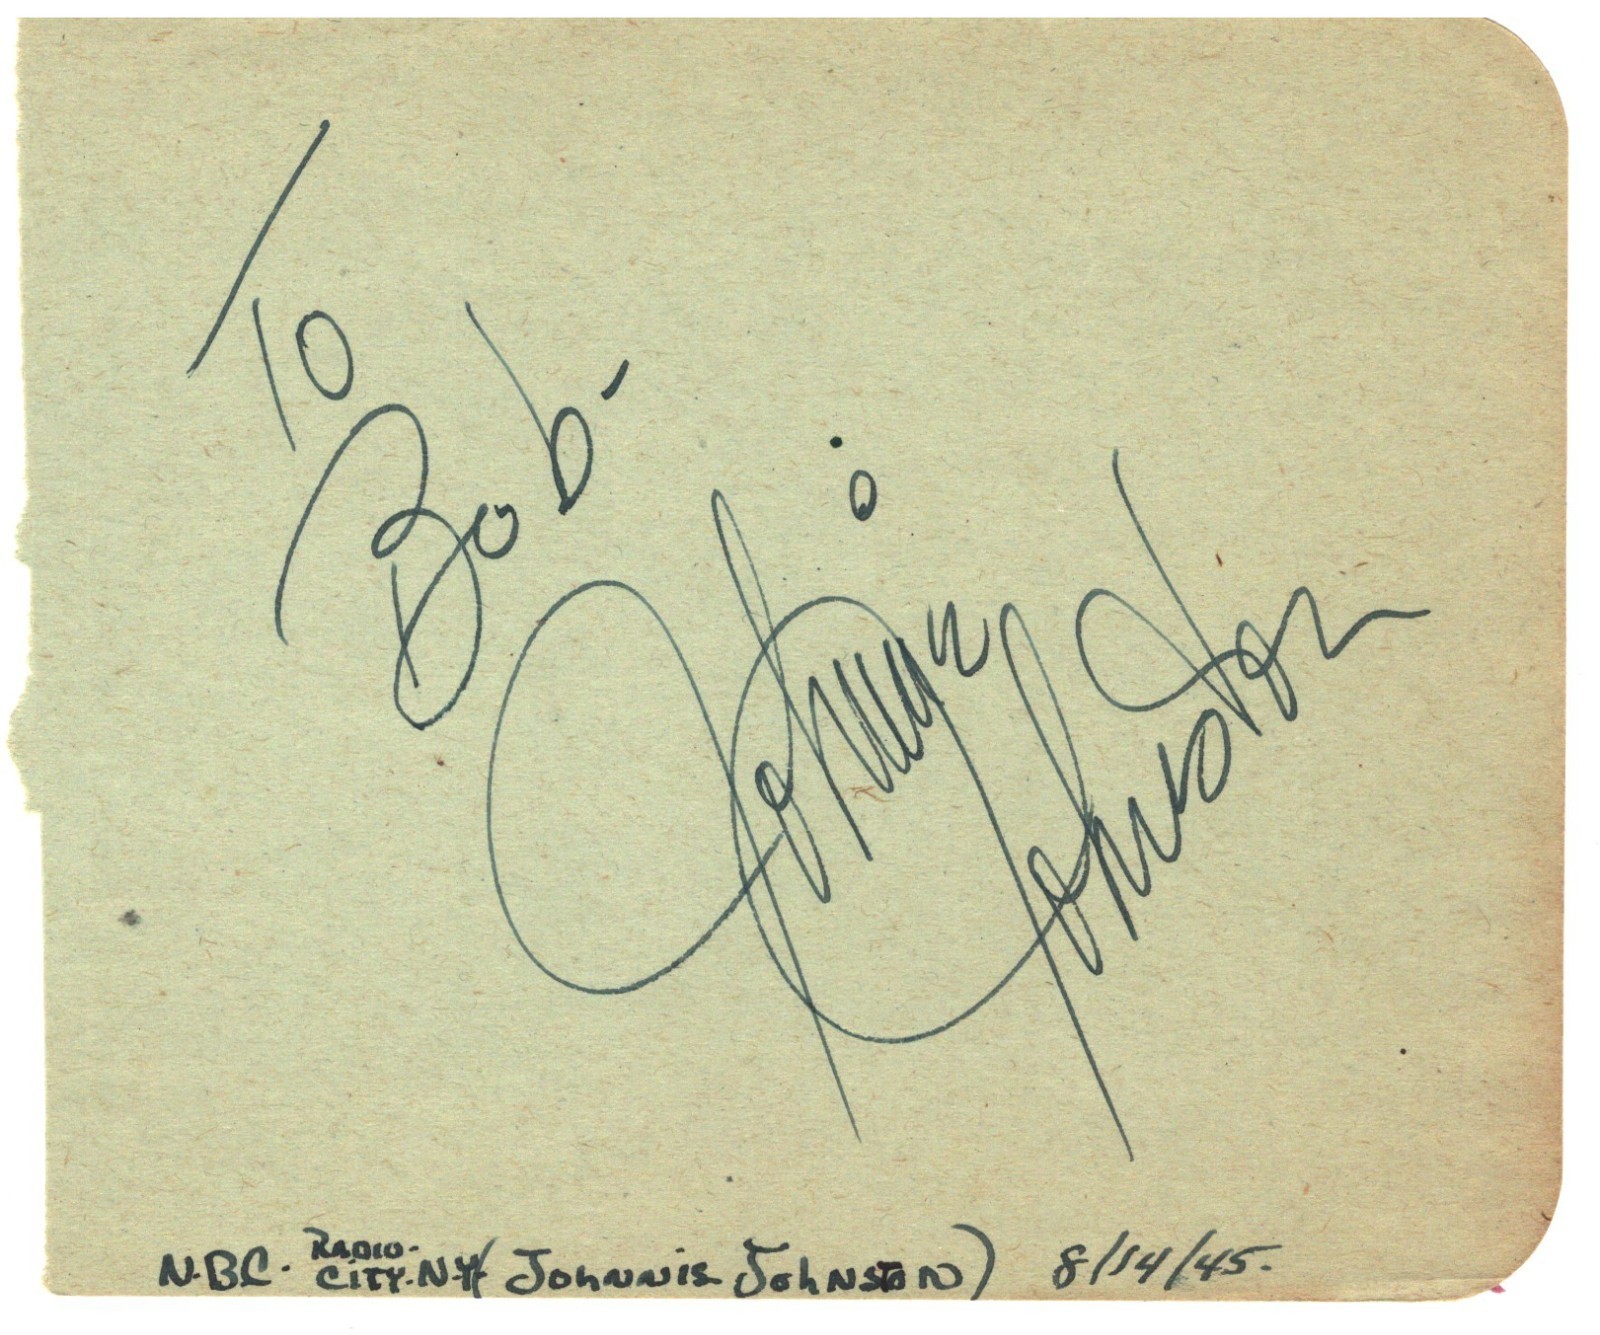 To
Bob-
Johnnie Johnston
N.B.C. RADIO-CITY-N.Y. (Johnnie Johnston) 8/14/45.